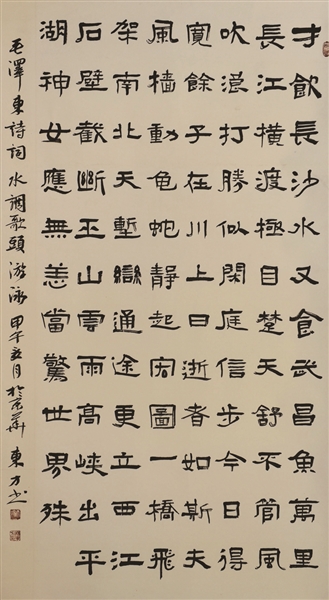 才飲長沙水又食武昌魚萬里
長江橫渡極目楚天舒不管風
吹浪打勝似閑庭信步今日得
寬餘子在川上曰逝者如斯夫
風檣動龜蛇靜起宏圖一橋飛
架南北天塹變通途更立西江
石壁截斷巫山雲雨高峽出平
湖神女應無恙當驚世界殊
毛澤東詩詞水調歌頭游泳甲午月於京華東方書